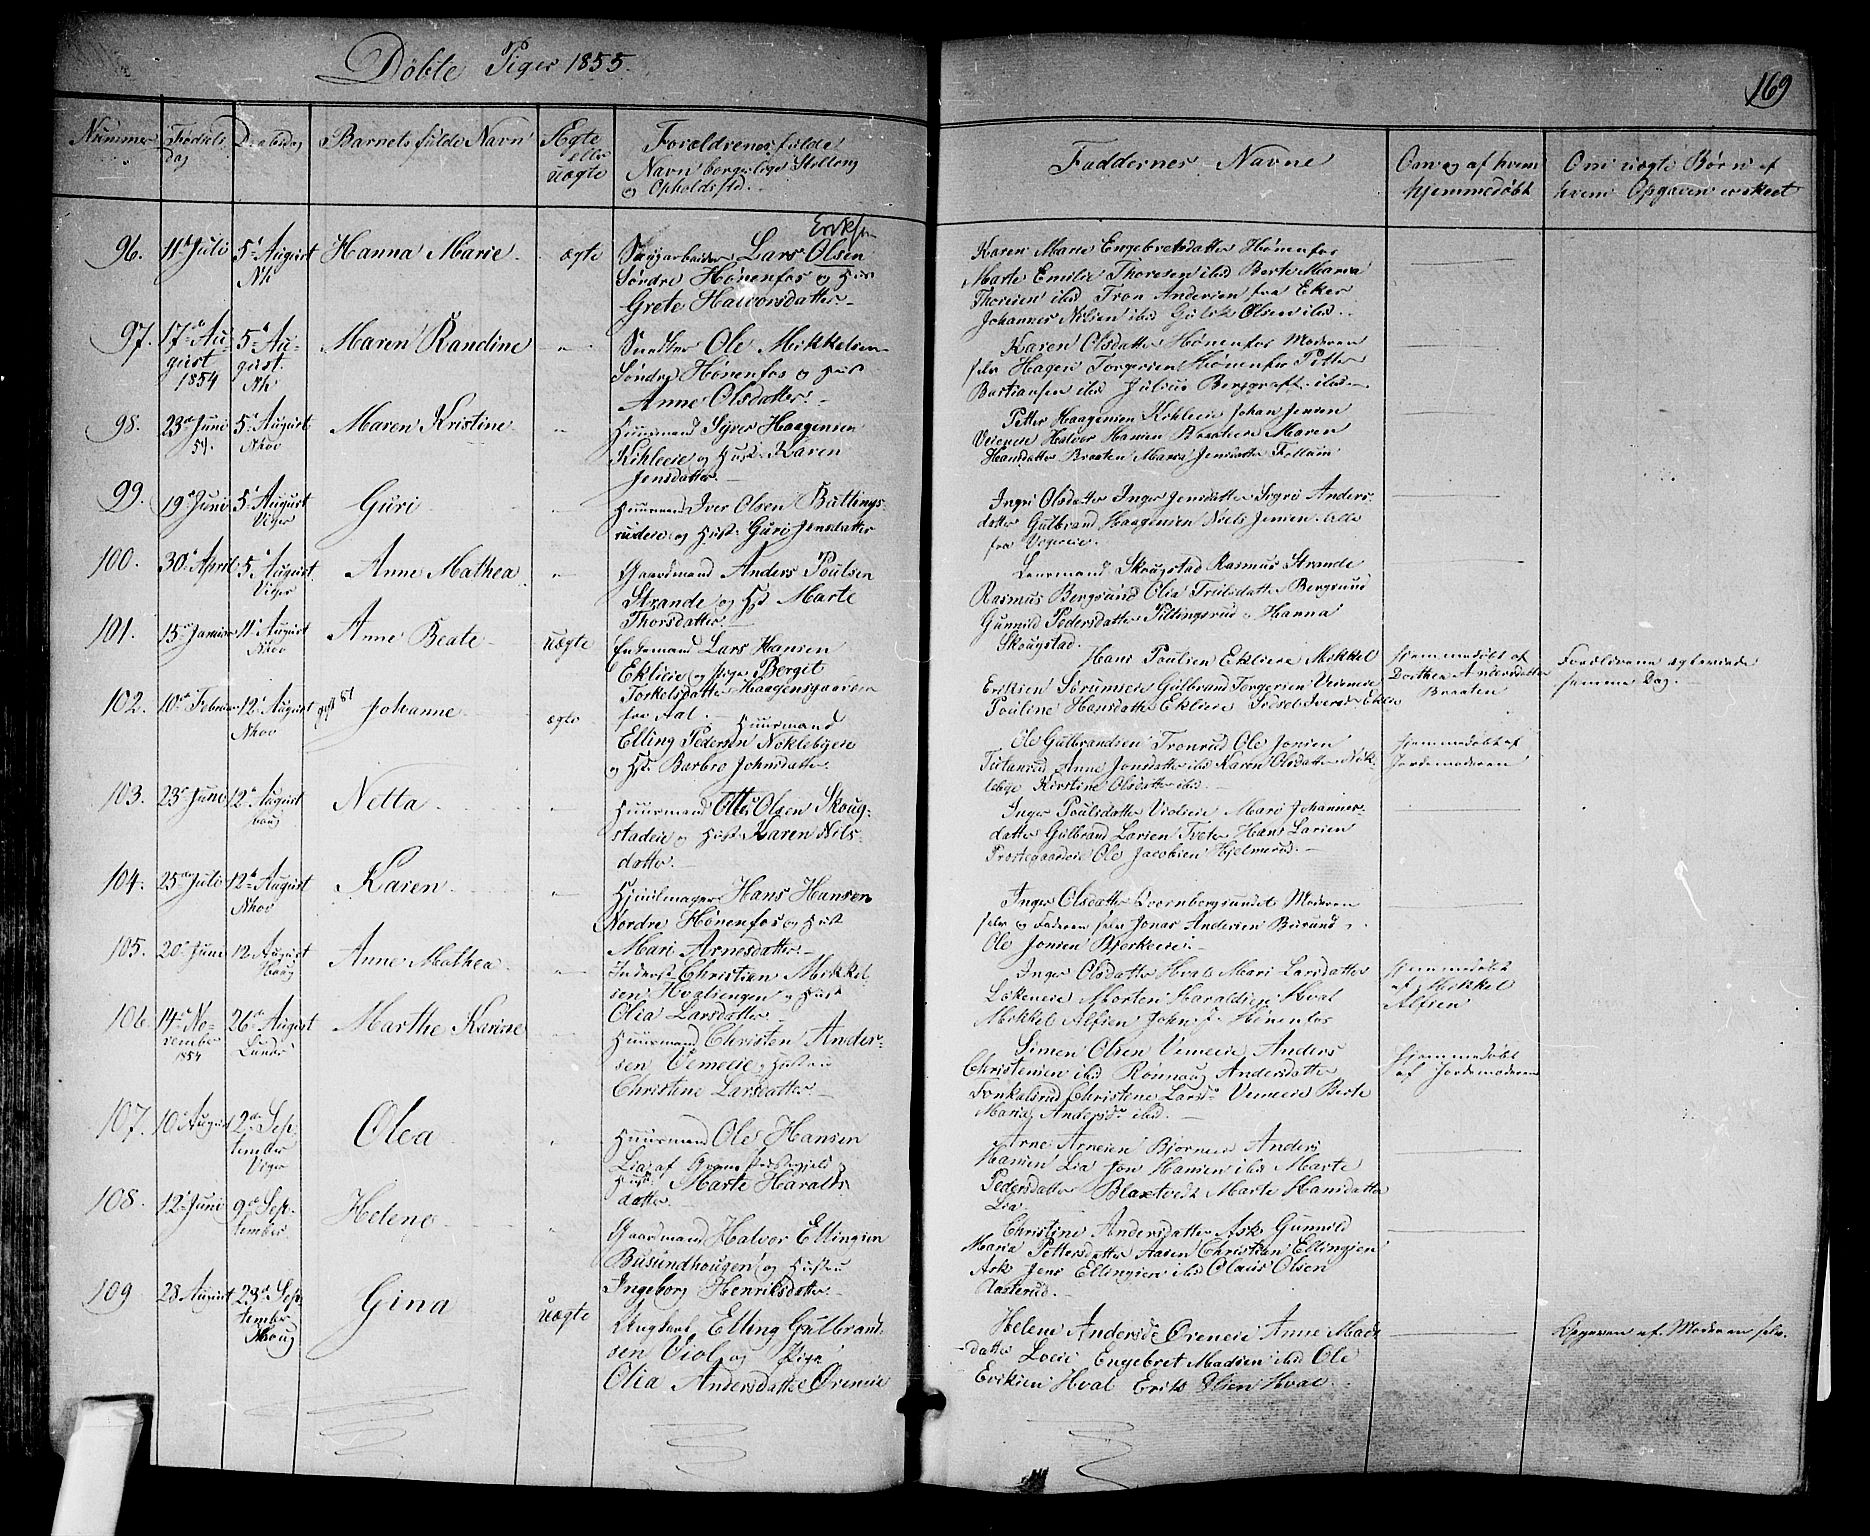 Döbte Piger 1855.
169
Nummer
Fødsels
Dag
Daabsdag
Barnets fulde Navn
Ægte
eller
uægte
Forældrenes fulde
Navn borgerlige Stilling
og Opholdsstd.
Faddernes Navne
Om og af hvem
hjemmedöbt
Om uægte Børn af
hvem Opgaven er skeet
96.
11te Juli
5te August
Nk
Hanna Marie
ægte
Eriksen
Saugarbeider Lars Olsen
Søndre Hönenfos og Hus
Grete Halvorsdatter
Karen Marie Engebretsdatter Hönenfos
Marte Emilie Thoresen ibid Berte Maria
Thoresen ibid Tron Andersen fra Eker
Johannes Nilsen ibid Gulik Olsen ibid.
97.
17de Au-
gust
1854
5te Au-
gust.
Nk
Maren Randine
"
Ole Mikkelsen
Søndre Hönenfos og Hust
Anne Olsdatter
Karen Olsdatter Hönenfos Moderen
selv Hagen Torgersen Hönenfos Petter
Bastiansen ibid Julius Berggraf ibid
98.
23de Juni
54.
5te August
Nhov
Maren Kristine
"
Huusmand Syver Haagensen
Kihleeie og Hust. Karen
Jensdatter
Petter Haagensen Kihleeie Johan Jensen
Veieneie Halvor Hansen Braateie Maren
Hansdatter Braaten Maria Jensdatter Follum
99.
19de Juni
5te August
Viger
Guri
Huusmand Iver Olsen Bullings-
rudeie og Hust. Guri Jensdatter
Ingri Olsdatter Inger Jensdatter Sigri Anders-
datter Gulbrand Haagensen Niels Jensen Alle
fra
100.
30te April
5te August
Viger
Anne Mathea
"
Gaardmand Anders Poulsen
Strande og Hst Marte
Thorsdatter
Lensmand Skougstad Rasmus Strande
Rasmus Bergsund Olia Trulsdatter Bergsund
Gunnild Pedersdatter Pillingsrud Hanna
Skougstad.
101.
15de Januar
11te August
Nhov
Anne Beate
uægte
Enkemand Lars Hansen
Ekleeie og Pige Bergit
Torkelsdatter Haagensgaarden
fra Aal.
Hans Poulsen Ekleeie Mikkel
Eriksen Sörumseie Gulbrand Torgersen Veieneie
Pauline Hansdatter Ekleeie Iversdr Eklen
Hjemmedöbt af
Dorthea Andersdatter
Braaten
Forældrene ægteviede
samme Dag.
102.
10de Februar
12te August
Nhov
Johanne
ægte
Huusmand
Elling Pedersen Noklebyeie
og Hst. Barbro Johnsdatter
Ole Gulbrandsen Tronrud Ole Jonsen
Anne Jonsdatter ibid Karen Olsdatter Nok-
lebye Kirstine Olsdatter ibid.
Hjemmedöbt af
Jordemoderen
103.
23de Juni
12te August
Houg
Netta
"
Huusmand Otto Olsen Skoug-
stadeie og Hust Karen Nils-
datter
Inger Poulsdatter Violseie Mari Johannes-
datter Gulbrand Larsen Tveter Hans Larsen
Prostegaardeie Ole Jacobsen Hjelmerud.
104.
25de Juli
12te August
Nhov
Karen
"
Hjulmager Hans Hansen
Nordre Hönenfos og Hust
Mari Arnesdatter
Inger Olsdatter Moderen
selv og Faderen selv Jonas Andersen Busund
Ole Jonsen Bjerkeeie
105.
20de Juni
12 August
Houg
Anne Mathea
"
Inderst Christian Mikkel-
sen Hvalsengen og Hust
Olia Larsdatter
Inger Olsdatter Hvals Mari Larsdatter
Lökeneie Morten Haraldsen Hval
Mikkel Alfsen John J. Hönenfos
Hjemmedöbt
af Mikkel
Alfsen
106
14de No-
vember
1854
26de August
Lunder
Marthe Karine
"
Huusmand Christen Ander-
sen Vemeeie, Hustru
Christine Larsdatter
Simen Olsen Vemeeie Anders
Christensen ibid Rönnaug Andersdatter
Fonkalsrud Christine Larsdr Vemeeie Berte
Maria Andersdr ibid.
Hjemmedöbt
af Jordemoderen
107.
10de August
2den Sep-
tember
Viger
Olea
"
Huusmand Ole Hansen
Lia, af Præstegjeld og
Hust. Marte Haralds-
datter
Arne Arnesen Anders
Hansen Lia Jon Hansen ibid Marte
Pedersdatter Blaxtvedt Marte Hansdatter
Lia.
108.
12te Juni
9de Sep-
tember
Helene
"
Gaardmand Halvor Ellingsen
Busundhougen og Hustru
Ingeborg Henriksdatter
Christine Andersdatter Ask Gunnild
Maria Pettersdatter Aasen Christian Ellingsen
Ask Jens Ellingsen ibid Claus Olsen
Aasterud.
109
28 August
23de Sep-
tember
Houg
Gina
uægte
Ungkarl Elling Gulbrand-
sen Viol, og Pige
Olia Andersdatter Öreneie
Helene Andersdr Öreneie Anne Mads-
datter Loeie Engebret Madsen ibid Ole
Eriksen Hval Erik Olsen Hval.
Opgaven af Moderen selv.